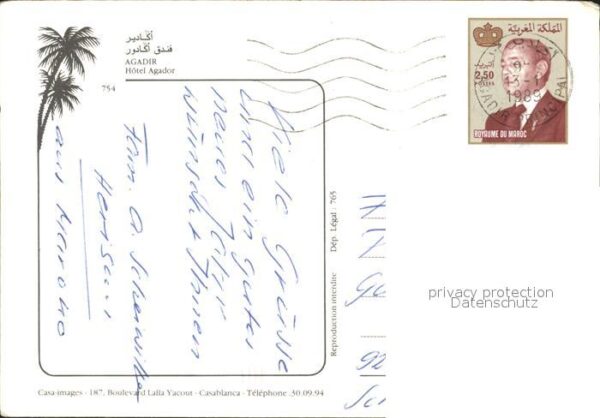 أكادير
فندق أكادور
AGADIR
Hôtel Agador
754
Viele Grüsse
und ein gutes
neues Jahr
wünscht Ihnen
Fam. A.
Herisau
aus Marokko
Dép. Légal - 765
Reproduction interdite
Casa-images - 187, Boulevard Lalla Yacout - Casablanca - Téléphone : 30.09.94
المملكة المغربية
2,50
POSTES
1989
AGADIR PRINCIPAL
ROYAUME DU MAROC
privacy protection
Datenschutz
92